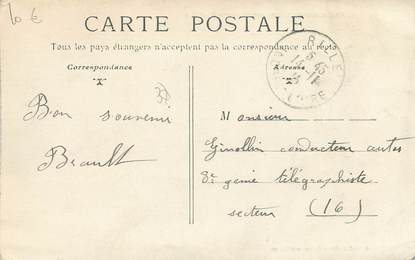 10 €
CARTE POSTALE
Tous les pays étrangers n'acceptent pas la correspondance au recto
Correspondance
Adresse
RILLÉ
5 45
14-11
LOIRE
37
Bon souvenir
Brault
Monsieur
conducteur autos
8e genie télégraphiste
secteur (16)